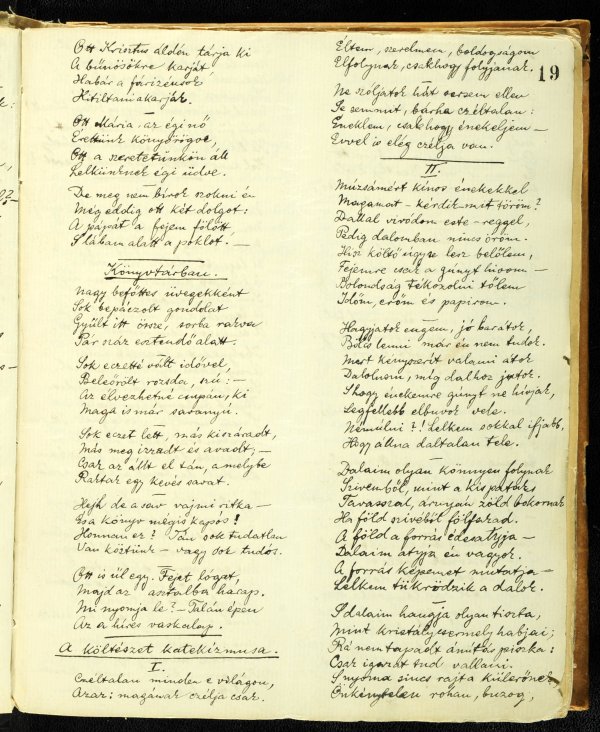 Ott Krisztus áldón tárja ki
A bűnösökre karját
Habár a fárizeusok
Kitiltani akarják.
Ott Mária, az égi nő
Érettünk könyörögve,
Ott a szeretetünkön áll
Lelkünknek égi üdve.
De még nem birok szokni én
Még eddig ott két dolgot:
A pápát a fejem fölött
S lábam alatt a poklot. —
Könyvtárban.
Nagy befőttes üvegekként
Sok bepáczolt gondolat
Gyűlt itt össze, sorba rakva
Pár száz esztendő alatt.
Sok eczetté vált idővel,
Beleőrölt rozsda, szú: —
Az élvezhetné csupán, ki
Maga is már savanyú.
Sok eczet lett, más kiszáradt,
Más meg izzadt és avadt; —
Csak az állt el tán, a melybe
Raktak egy kevés savat.
Hejh de a sav vajmi ritka —
És a könyv mégis kapós!
Honnan ez? Tán sok tudatlan
Van köztünk — vagy sok tudós.
Ott is ül egy. Fejét lógat,
Majd az asztalba harap.
Mi nyomja le? — Talán épen
Az a híres vaskalap.
A költészet katekizmusa.
I.
Czéltalan minden e világon,
Azaz: magának czélja csak.
19
Éltem, szerelmem, boldogságom
Elfolynak, csakhogy folyjanak.
Ne szóljatok hát versem ellen
Se semmit, bárha czéltalan:
Éneklem, csakhogy énekeljem —
Evvel is elég czélja van.
II.
Múzsámért kínos énekekkel
Magamat — kérdik — mit töröm?
Dallal viródom este-reggel,
Pedig dalomban nincs öröm.
Hisz költő úgyse lesz belőlem,
Fejemre csak a gúnyt hívom —
Bolondság tékozolni tőlem
Időm, erőm és papirom.
Hagyjatok engem, jó barátok,
Bölcs lenni már én nem tudok.
Mert kényszerít valami átok
Dalolnom, míg dalhoz jutok.
S hogy énekemre gúnyt ne hívjak,
Legfellebb elbuvok vele.
Némulni?! Lelkem sokkal ifjabb,
Hogy állna daltalan tele.
Dalaim olyan könnyen folynak
Szivemből, mint a kis patak
Tavasszal, árnyán zöld bokornak
Ha föld szivéből fölfakad.
A föld a forrás édesatyja —
Dalaim atyja én vagyok.
A forrás képemet mutatja —
Lelkem tükrödzik a dalok.
S dalaim hangja olyan tiszta,
Mint kristálycsermely habjai;
Rá nem tapadt ámítás piszka:
Csak igazát tud vallani.
S nyoma sincs rajta külerőnek
Önkénytelen rohan, buzog,